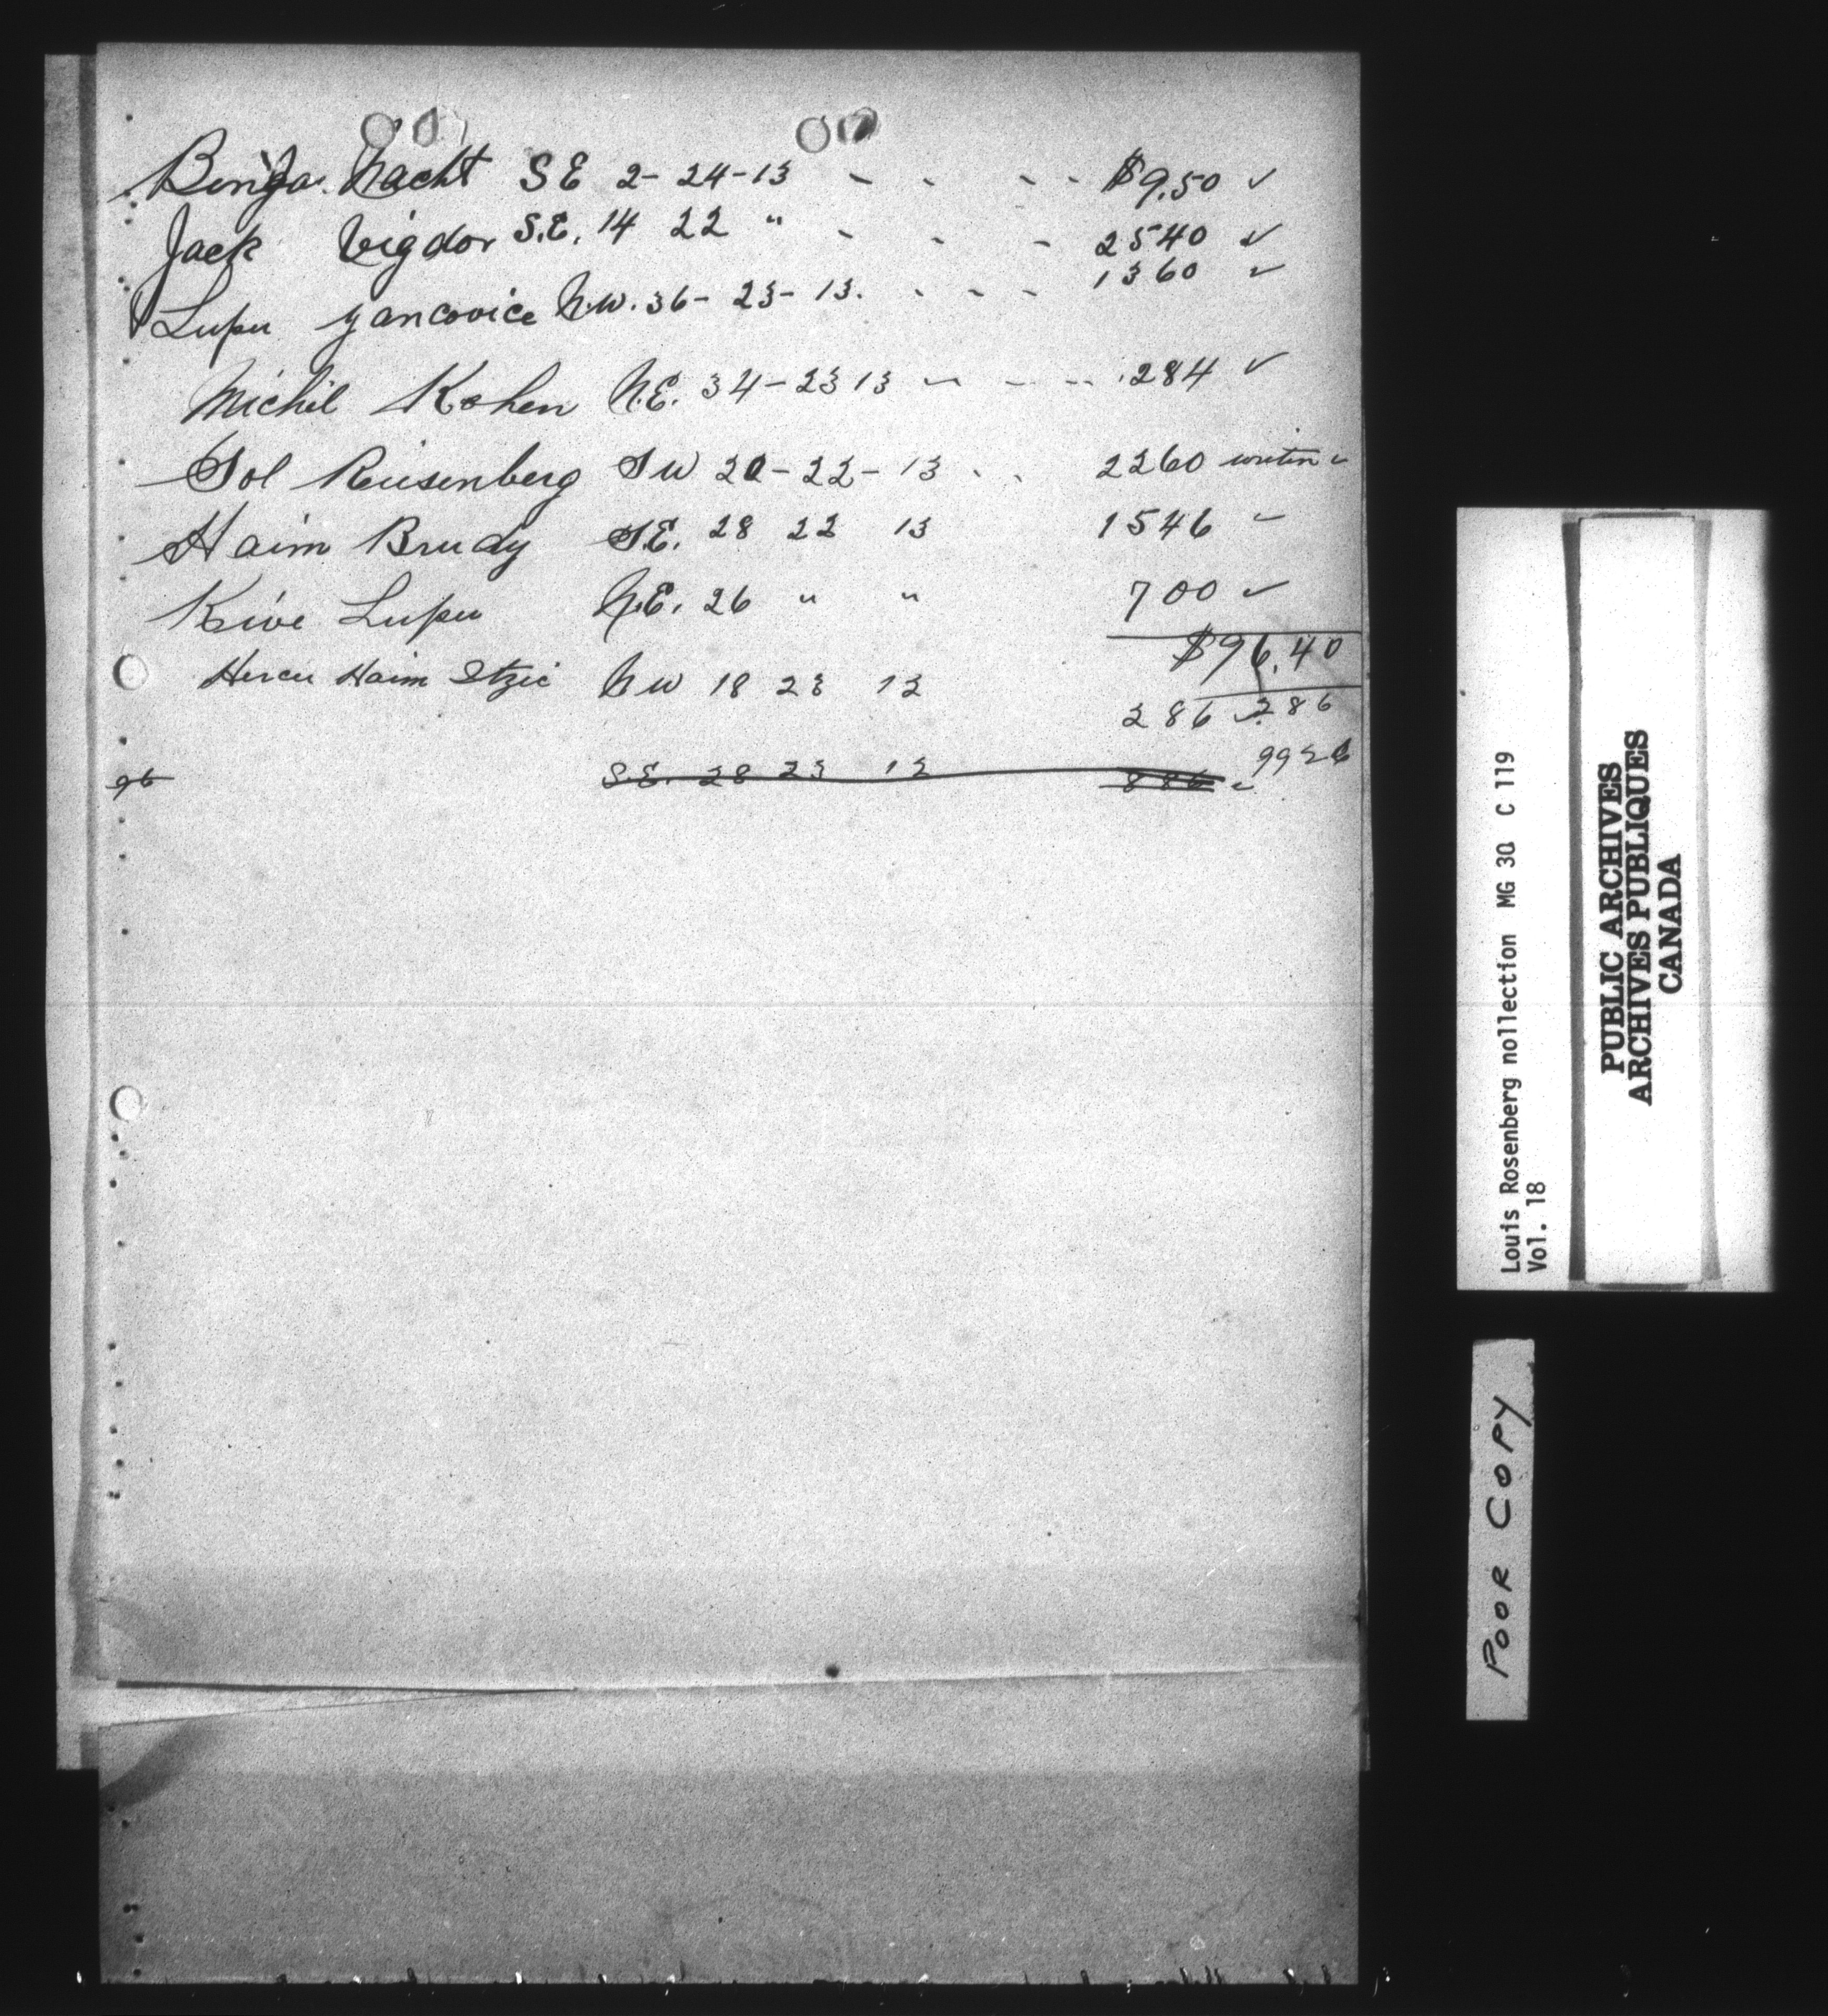 Benja. Nacht S E 2- 24-13 - - - - $9.50 ✓
Jack Vigdor S.E. 14 22 " - - - 2540 ✓
Lupu Yancovice N.W. 36- 23- 13. - - - - 1360 ✓
Michil Kohen N.E. 34-23 13 - - - - 284 ✓
Sol Reisenberg S W 20-22-13 - - 2260 ✓
Haim Brudy S.E. 28 22 13 1546 ✓
Kive Lupu N.E. 26 " " 700 ✓
$96.40
Hercu Haim Itzic N W 18 23 12 286 ✓ 286
9926
96 S.E. 28 23 12 886 ✓
Louis Rosenberg nollection MG 30 C 119
Vol. 18
PUBLIC ARCHIVES
ARCHIVES PUBLIQUES
CANADA
POOR COPY